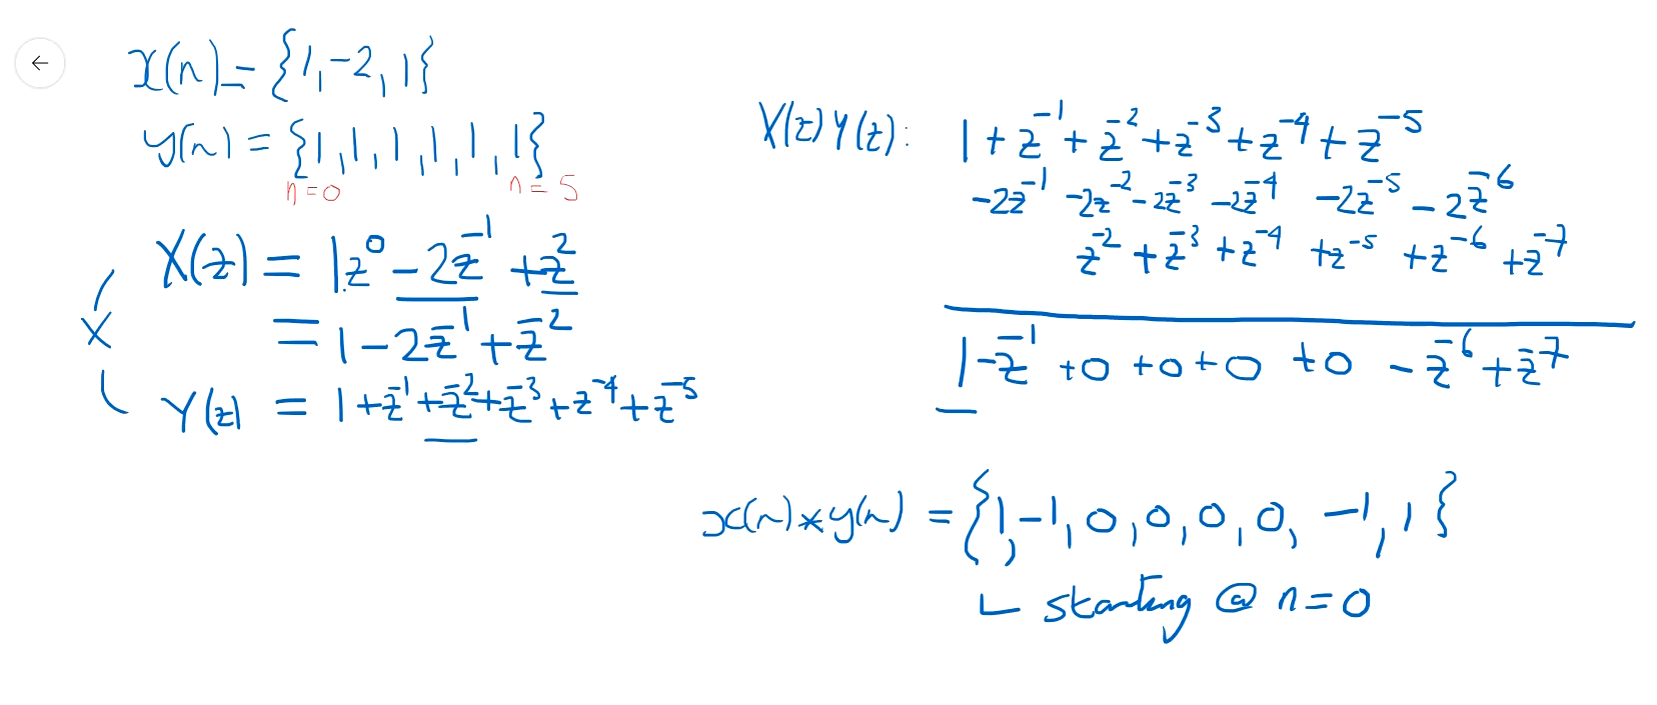 x(n) = {1, -2, 1}
y(n) = {1, 1, 1, 1, 1, 1}
n=0 n=5
X(z) = 1z⁰ - 2z⁻¹ + z⁻²
= 1 - 2z⁻¹ + z⁻²
X
Y(z) = 1 + z⁻¹ + z⁻² + z⁻³ + z⁻⁴ + z⁻⁵
X(z)Y(z): 1 + z⁻¹ + z⁻² + z⁻³ + z⁻⁴ + z⁻⁵
-2z⁻¹ -2z⁻² -2z⁻³ -2z⁻⁴ -2z⁻⁵ -2z⁻⁶
z⁻² + z⁻³ + z⁻⁴ + z⁻⁵ + z⁻⁶ + z⁻⁷
1 - z⁻¹ + 0 + 0 + 0 + 0 - z⁻⁶ + z⁻⁷
x(n) * y(n) = {1, -1, 0, 0, 0, 0, -1, 1}
starting @ n=0